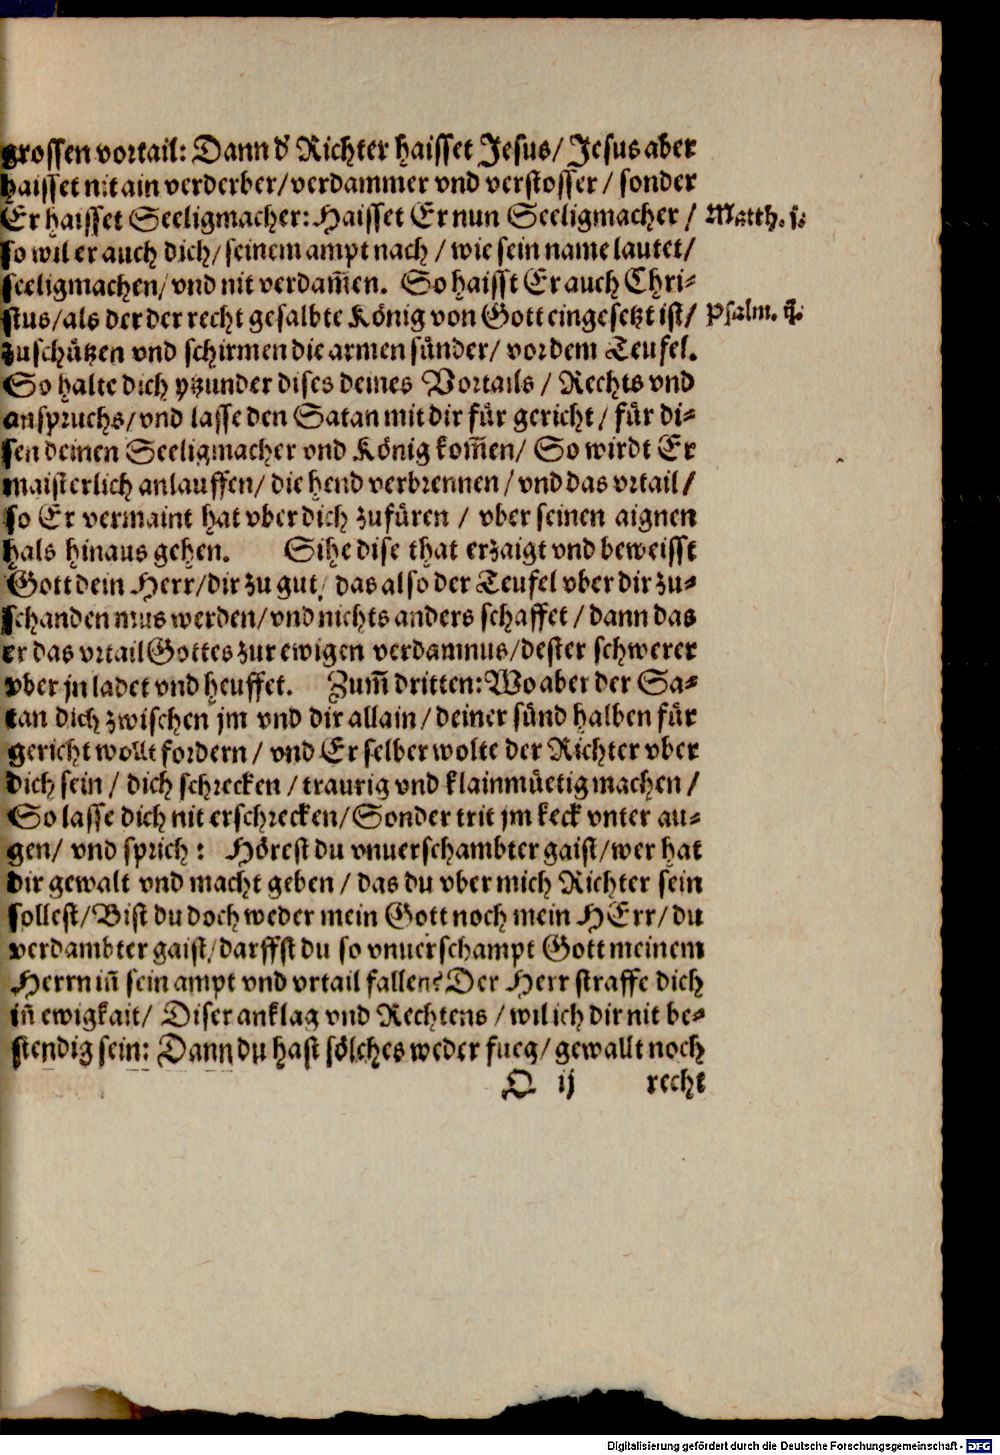 grossen vortail: Dann d' Richter haisset Jesus/ Jesus aber
haisset nit ain verderber/ verdammer vnd verstosser / sonder
Er haisset Seeligmacher: Haisset Er nun Seeligmacher / Matth. j.
so wil er auch dich/ seinem ampt nach / wie sein name lautet/
seeligmachen/ vnd nit verdam̃en. So haisst Er auch Chri-
stus/ als der der recht gesalbte König von Gott eingesetzt ist/ Psalm. ij.
zu schützen vnd schirmen die armen sünder/ vor dem Teufel.
So halte dich ytzunder dises deines Vortails / Rechts vnd
anspruchs/ vnd lasse den Satan mit dir für gericht / für di-
sen deinen Seeligmacher vnd König kom̃en/ So wirdt Er
maisterlich anlauffen/ die hend verbrennen / vnd das vrtail /
so Er vermaint hat vber dich zufüren / vber seinen aignen
hals hinaus gehen. Sihe dise that erzaigt vnd beweisst
Gott dein Herr/ dir zu gut/ das also der Teufel vber dir zu-
schanden mus werden/ vnd nichts anders schaffet / dann das
er das vrtail Gottes zur ewigen verdamnus/ dester schwerer
vber jn ladet vnd heuffet. Zum̃ dritten: Wo aber der Sa-
tan dich zwischen jm vnd dir allain / deiner sünd halben für
gericht wollt fordern / vnd Er selber wolte der Richter vber
dich sein / dich schrecken / traurig vnd klainmüetig machen /
So lasse dich nit erschrecken/ Sonder trit jm keck vnter au-
gen/ vnd sprich: Hörest du vnuerschambter gaist/ wer hat
dir gewalt vnd macht geben / das du vber mich Richter sein
sollest/ Bist du doch weder mein Gott noch mein HErr/ du
verdambter gaist/ darffst du so vnuerschampt Gott meinem
Herrn in̄ sein ampt vnd vrtail fallen? Der Herr straffe dich
in̄ ewigkait/ Diser anklag vnd Rechtens / wil ich dir nit be-
stendig sein: Dann du hast sölches weder fueg/ gewallt noch
O ij recht
Digitalisierung gefördert durch die Deutsche Forschungsgemeinschaft - DFG